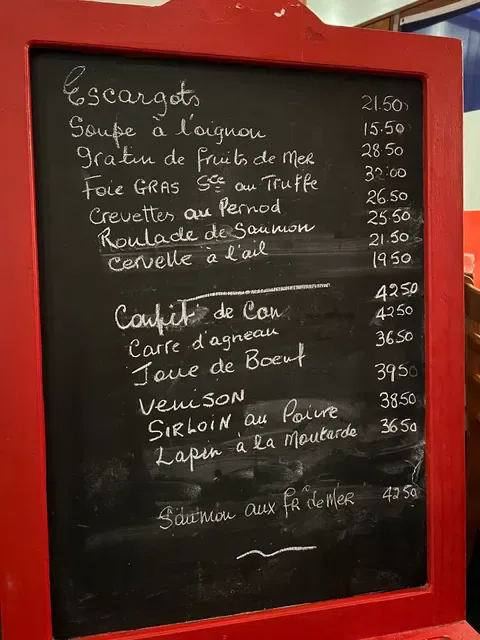 Escargots 21.50
Soupe à l'oignon 15.50
Gratin de fruits de Mer 28.50
Foie GRAS Sce au Truffe 32.00
Crevettes au Pernod 26.50
Roulade de Saumon 25.50
21.50
Cervelle à l'ail 19.50
Confit de Can 4250
Carre d'agneau 4250
Joue de Boeuf 3650
Venison 3950
SIRLOIN au Poivre 3850
Lapin à la Moutarde 3650
Saumon aux FR de MER 4250